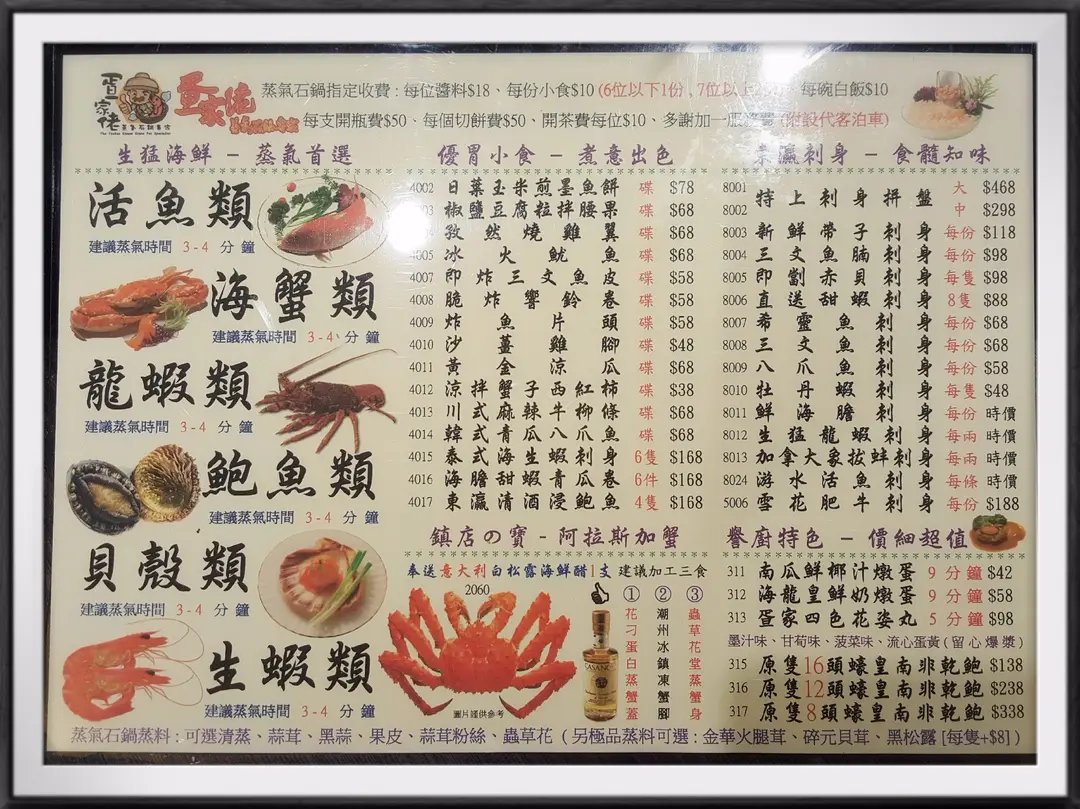 蛋家佬
蒸氣石鍋指定收費 : 每位醬料$18、每份小食$10 (6位以下1份 , 7位以上 每碗白飯$10
每支開瓶費$50、每個切餅費$50、開茶費每位$10、多謝加一服務費 (附設代客泊車)
生猛海鮮 – 蒸氣首選
活魚類
建議蒸氣時間 3-4 分鐘
海蟹類
建議蒸氣時間 3-4 分鐘
龍蝦類
建議蒸氣時間 3-4 分鐘
鮑魚類
建議蒸氣時間 3-4 分鐘
貝殼類
建議蒸氣時間 3-4 分鐘
生蝦類
建議蒸氣時間 3-4 分鐘
優胃小食 – 煮意出色
4002 日葉玉米煎墨魚餅 碟 $78
椒鹽豆腐粒拌腰果 碟 $68
孜然燒雞翼 碟 $68
4005 冰火魷魚 碟 $68
4007 即炸三文魚皮 碟 $58
4008 脆炸響鈴卷 碟 $58
4009 炸魚片頭 碟 $58
4010 沙薑雞腳 碟 $48
4011 黃金涼瓜 碟 $68
4012 涼拌蟹子西紅柿 碟 $38
4013 川式麻辣牛柳條 碟 $68
4014 韓式青瓜八爪魚 碟 $68
4015 泰式海生蝦刺身 6隻 $168
4016 海膽甜蝦青瓜卷 6件 $168
4017 東瀛清酒浸鮑魚 4隻 $168
鎮店の寶 - 阿拉斯加蟹
奉送意大利白松露海鮮醋1支 建議加工三食
2060
① 花刁蛋白蒸蟹蓋
② 潮州冰鎮凍蟹腳
③ 蟲草花堂蒸蟹身
圖片謹供參考
東瀛刺身 – 食髓知味
8001 特上刺身拼盤 大 $468
8002 中 $298
8003 新鮮帶子刺身 每份 $118
8004 三文魚腩刺身 每份 $98
8005 即劏赤貝刺身 每隻 $98
8006 直送甜蝦刺身 8隻 $88
8007 希靈魚刺身 每份 $68
8008 三文魚刺身 每份 $68
8009 八爪魚刺身 每份 $58
8010 牡丹蝦刺身 每隻 $48
8011 鮮海膽刺身 每份 時價
8012 生猛龍蝦刺身 每兩 時價
8013 加拿大象拔蚌刺身 每兩 時價
8024 游水活魚刺身 每條 時價
5006 雪花肥牛刺身 每份 $188
譽廚特色 – 價細超值
311 南瓜鮮椰汁燉蛋 9 分鐘 $42
312 海龍皇鮮奶燉蛋 9 分鐘 $58
313 蛋家四色花姿丸 5 分鐘 $98
墨汁味、甘荀味、菠菜味、流心蛋黃 ( 留心爆漿 )
315 原隻16頭蠔皇南非乾鮑 $138
316 原隻12頭蠔皇南非乾鮑 $238
317 原隻8頭蠔皇南非乾鮑 $338
蒸氣石鍋蒸料 : 可選清蒸、蒜茸、黑蒜、果皮、蒜茸粉絲、蟲草花 ( 另極品蒸料可選 : 金華火腿茸、碎元貝茸、黑松露 [每隻+$8] )